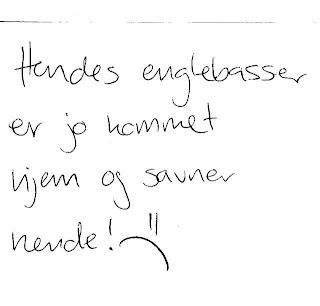 Hendes englebasser
er jo kommet
hjem og savner
hende! =(